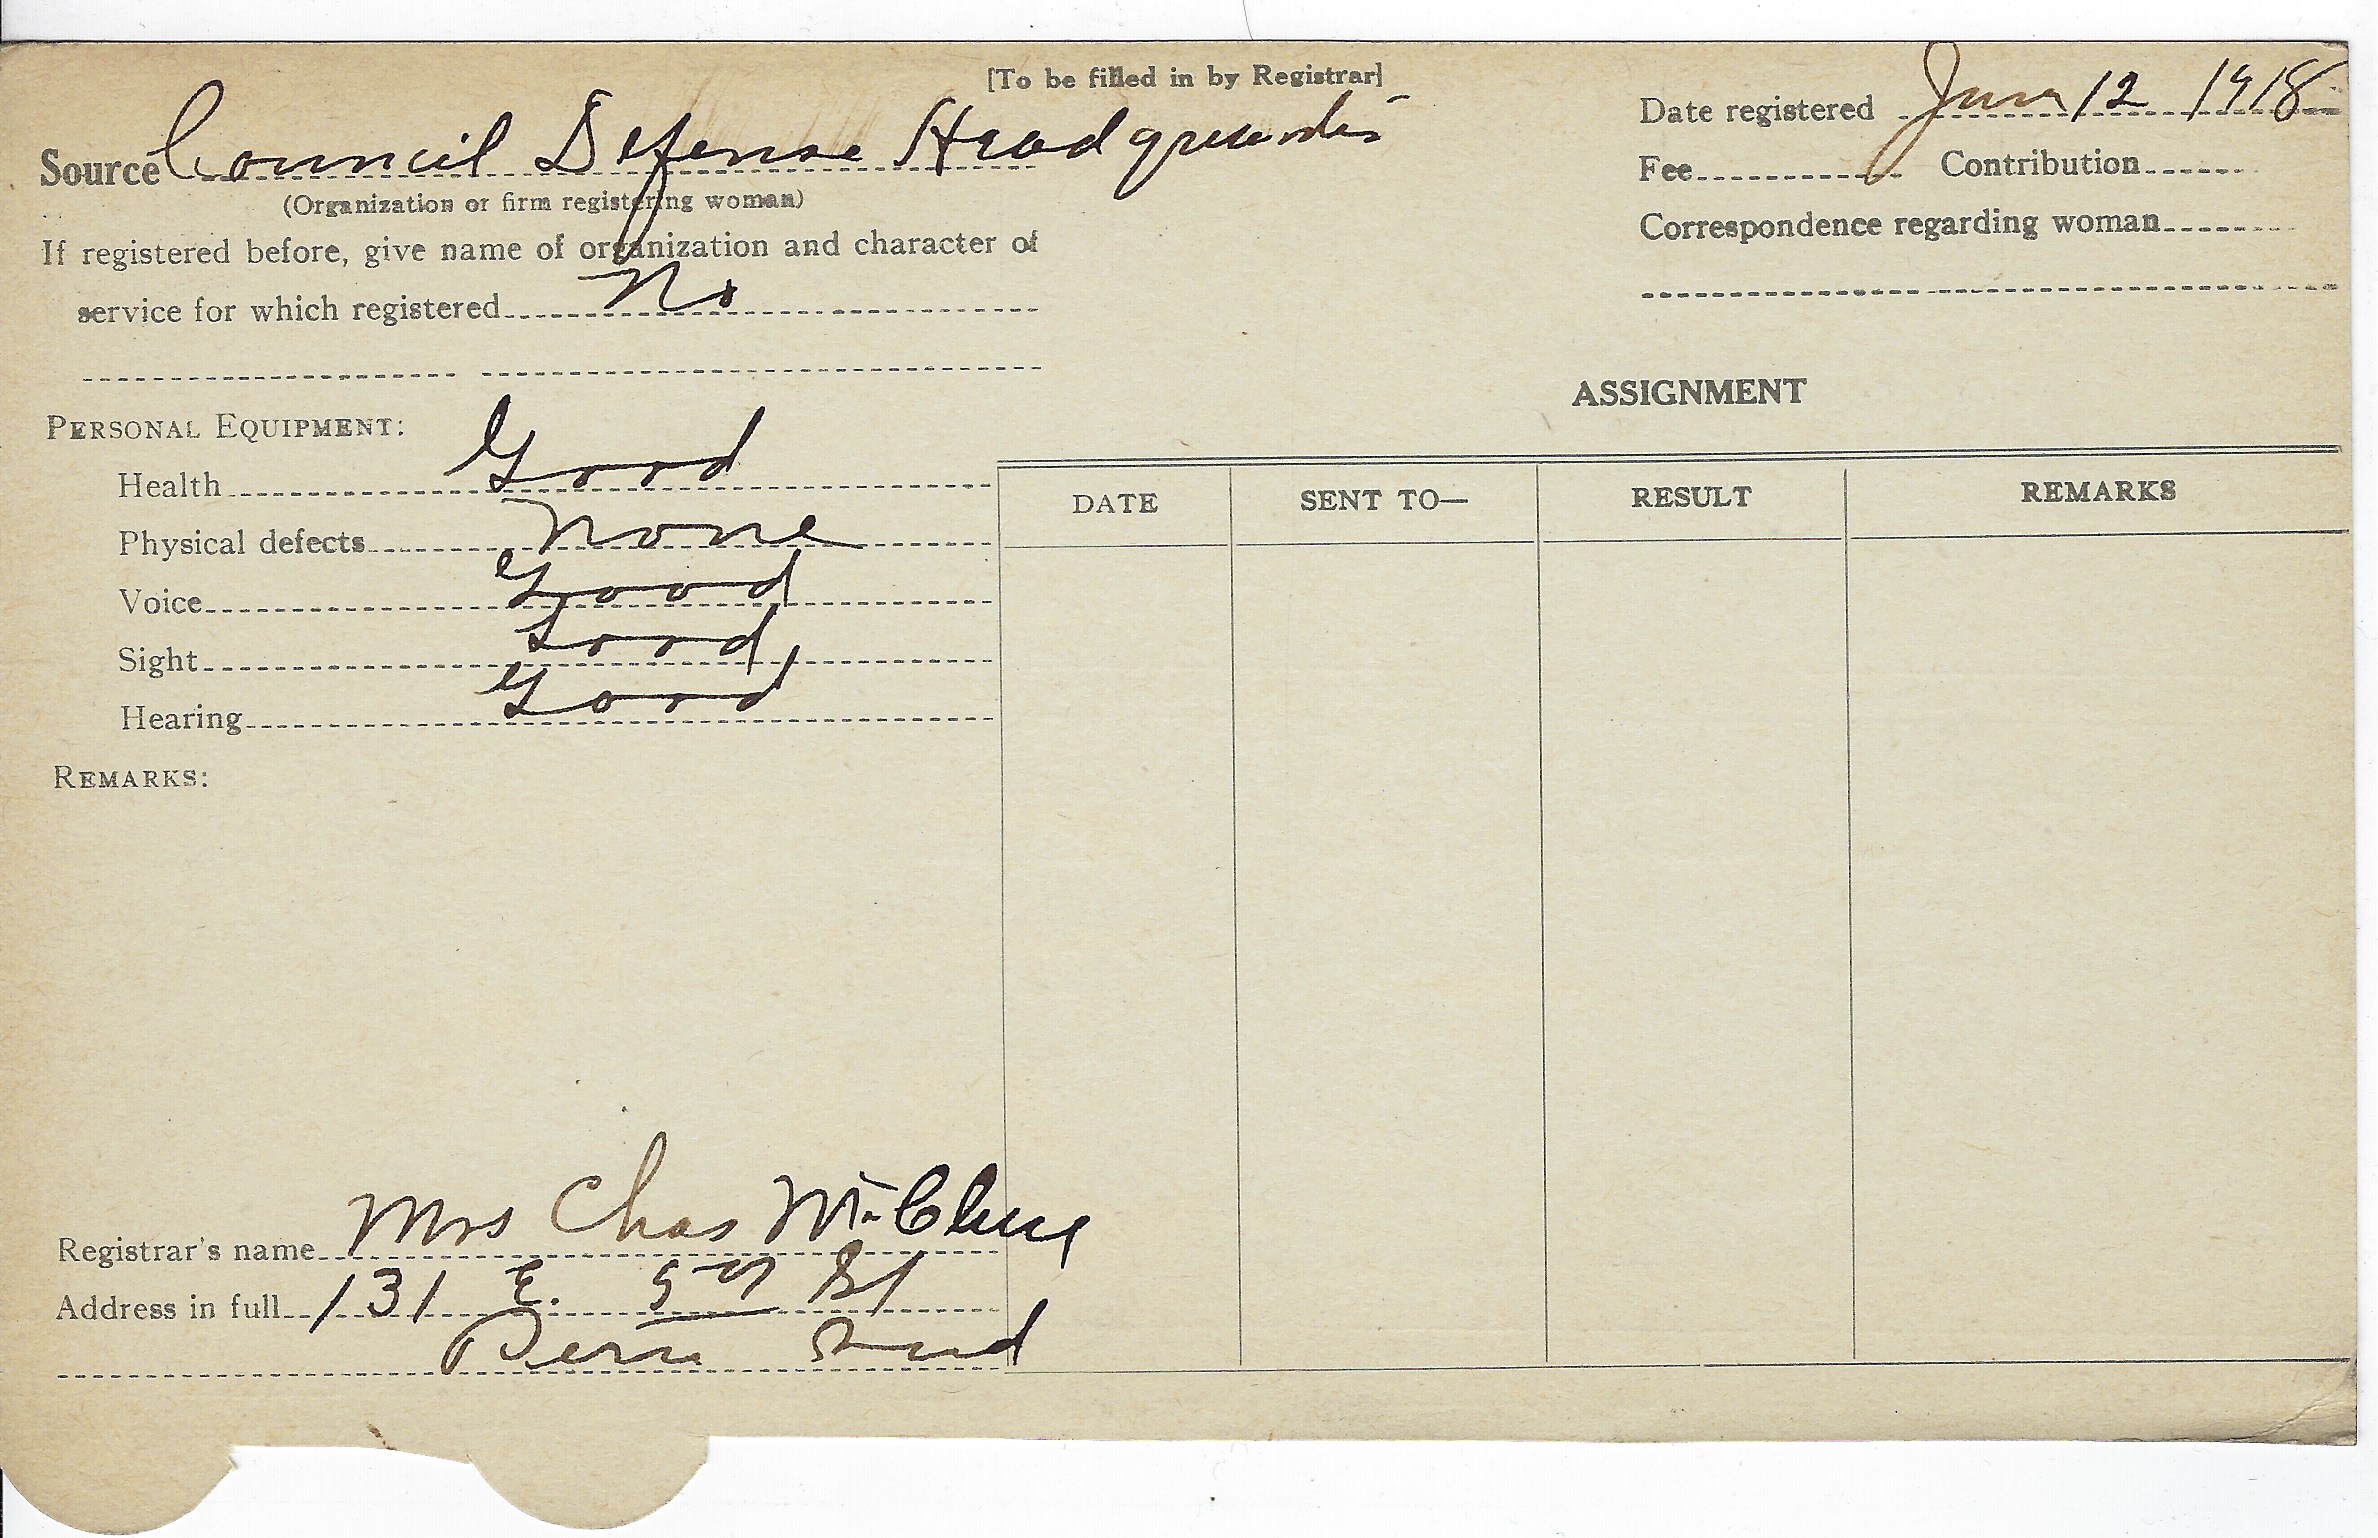 [To be filled in by Registrar]
Date registered June 12 1918
Source Council Defense Headquarters
(Organization or firm registering woman)
Fee Contribution
Correspondence regarding woman
If registered before, give name of organization and character of
service for which registered No
ASSIGNMENT
PERSONAL EQUIPMENT:
Health Good
Physical defects None
Voice Good
Sight Good
Hearing Good
DATE SENT TO— RESULT REMARKS
REMARKS:
Registrar's name Mrs Chas McClure
Address in full 131 E. 5th St
Peru Ind